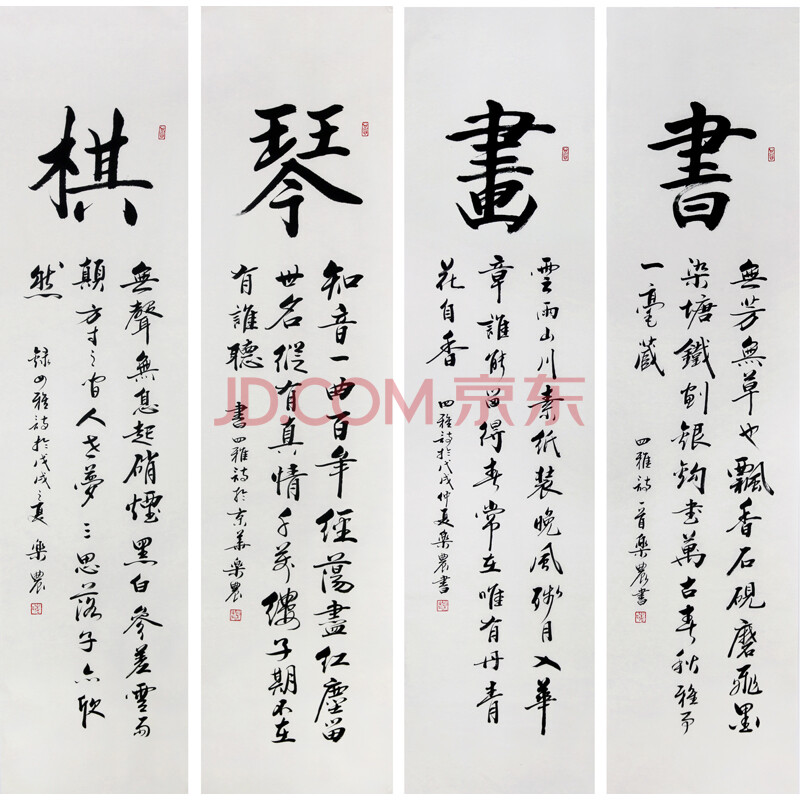 書
無芳無草也飄香石硯磨飛墨
染塘鐵劃銀鉤書萬古春秋雅事
一毫藏
四雅詩一首樂農書
畫
雲雨山川素紙裝晚風殘月入華
章誰能留得春常在唯有丹青
花自香
四雅詩於戊戌仲夏樂農書
琴
知音一曲百年經蕩盡紅塵留
世名縱有真情千萬縷子期不在
有誰聽
書四雅詩於京華樂農
棋
無聲無息起硝煙黑白參差雲雨
顛方寸之間人世夢三思落子亦欣
然
錄四雅詩於戊戌之夏樂農
JD.COM 京东